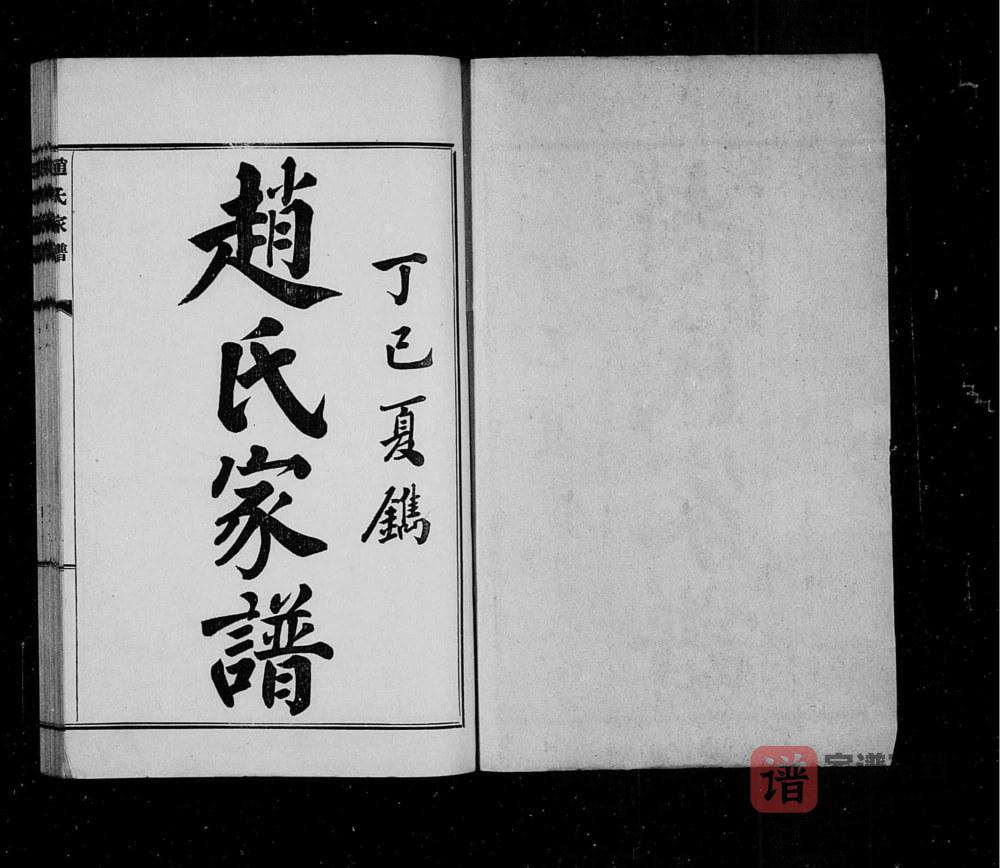 丁巳夏鐫
趙氏家譜
趙氏家譜
谱